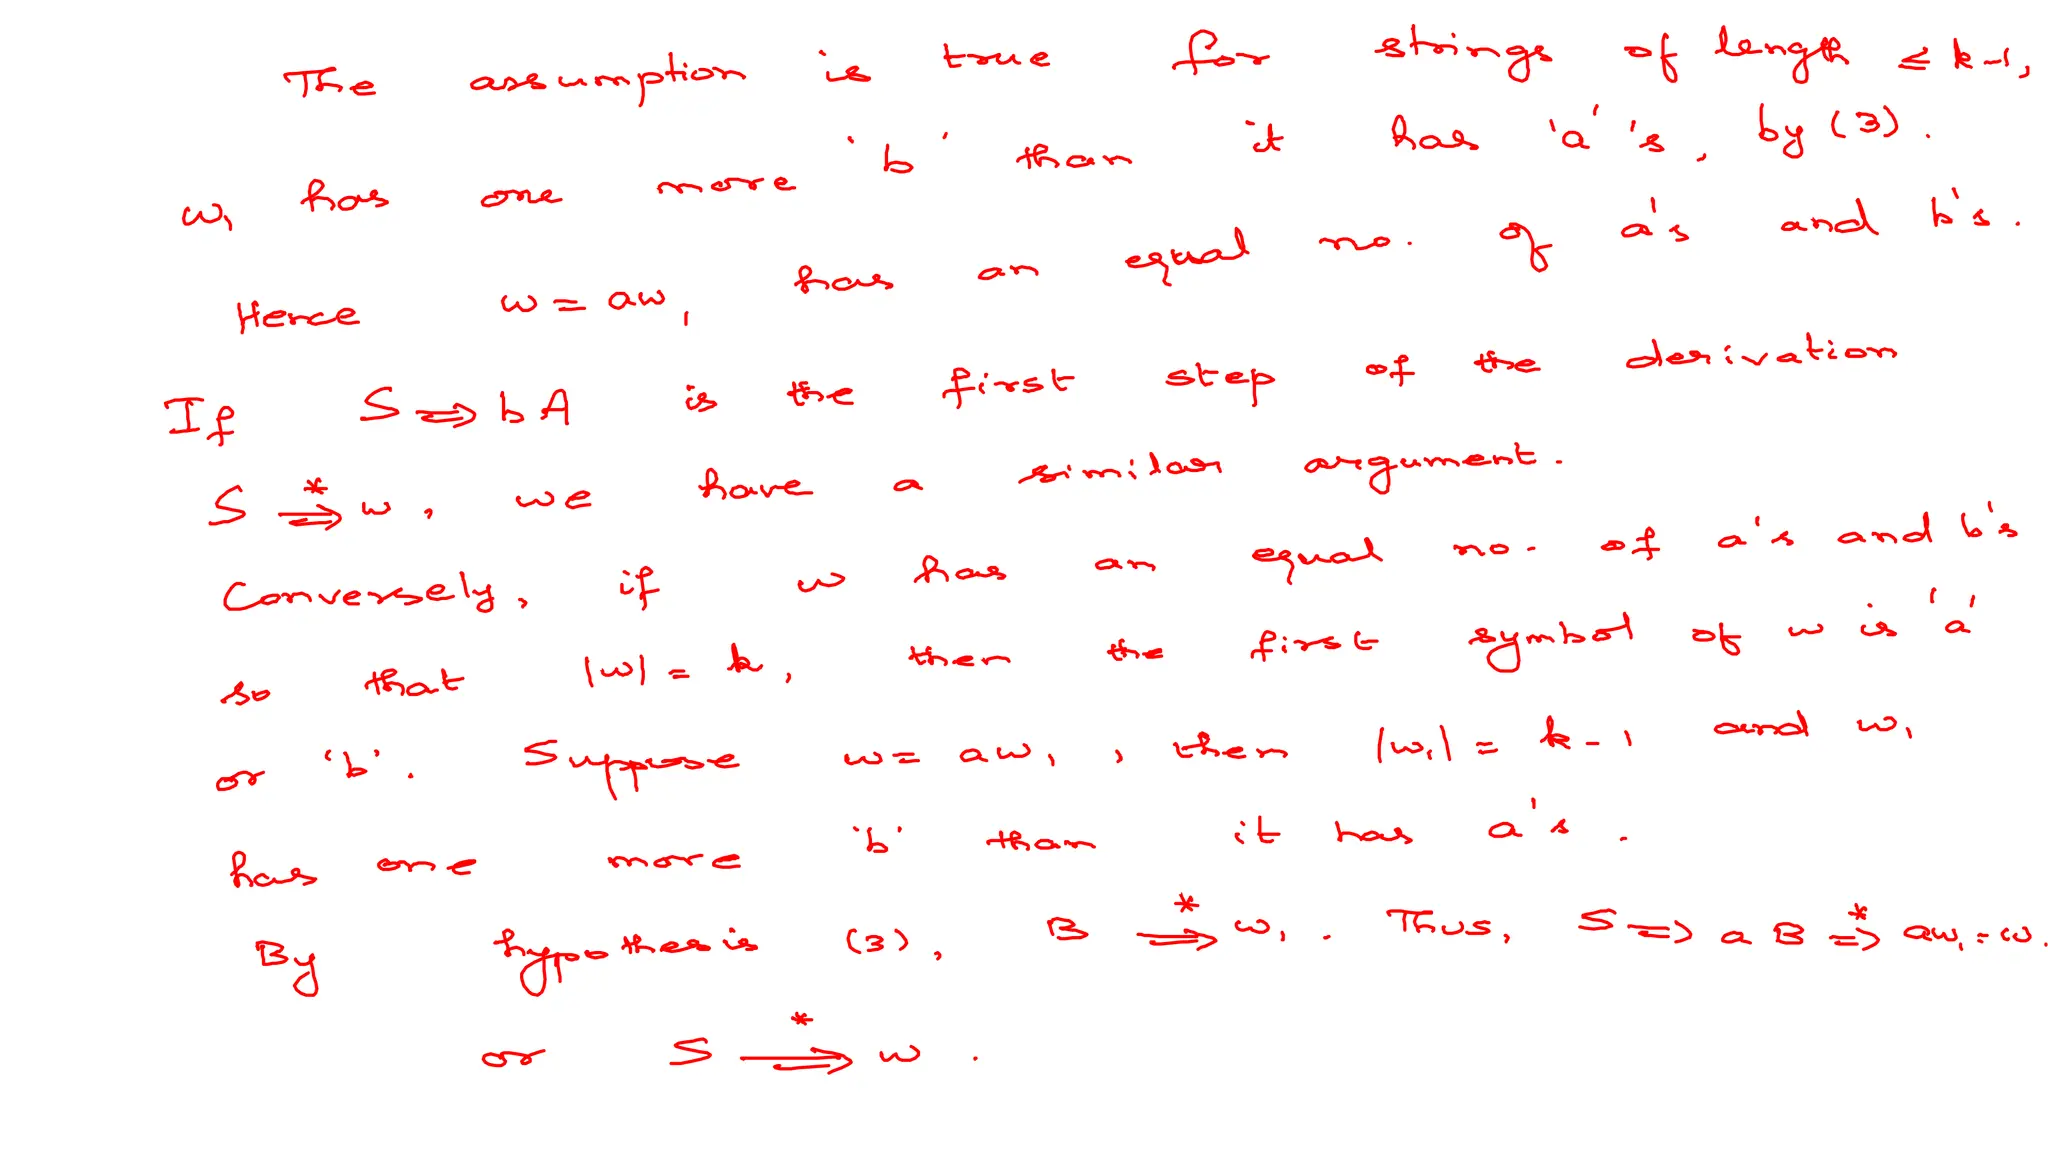 The assumption is true for strings of length ≤ k-1,
w₁ has one more 'b' than it has 'a''s, by (3).
Hence w = aw₁ has an equal no. of a's and b's.
If S ⇒ bA is the first step of the derivation
S ⇒* w, we have a similar argument.
Conversely, if w has an equal no. of a's and b's
so that |w| = k, then the first symbol of w is 'a'
or 'b'. Suppose w = aw₁, then |w₁| = k-1 and w₁
has one more 'b' than it has a's.
By hypothesis (3), B ⇒* w₁. Thus, S ⇒ aB ⇒* aw₁ = w.
or S ⇒* w.